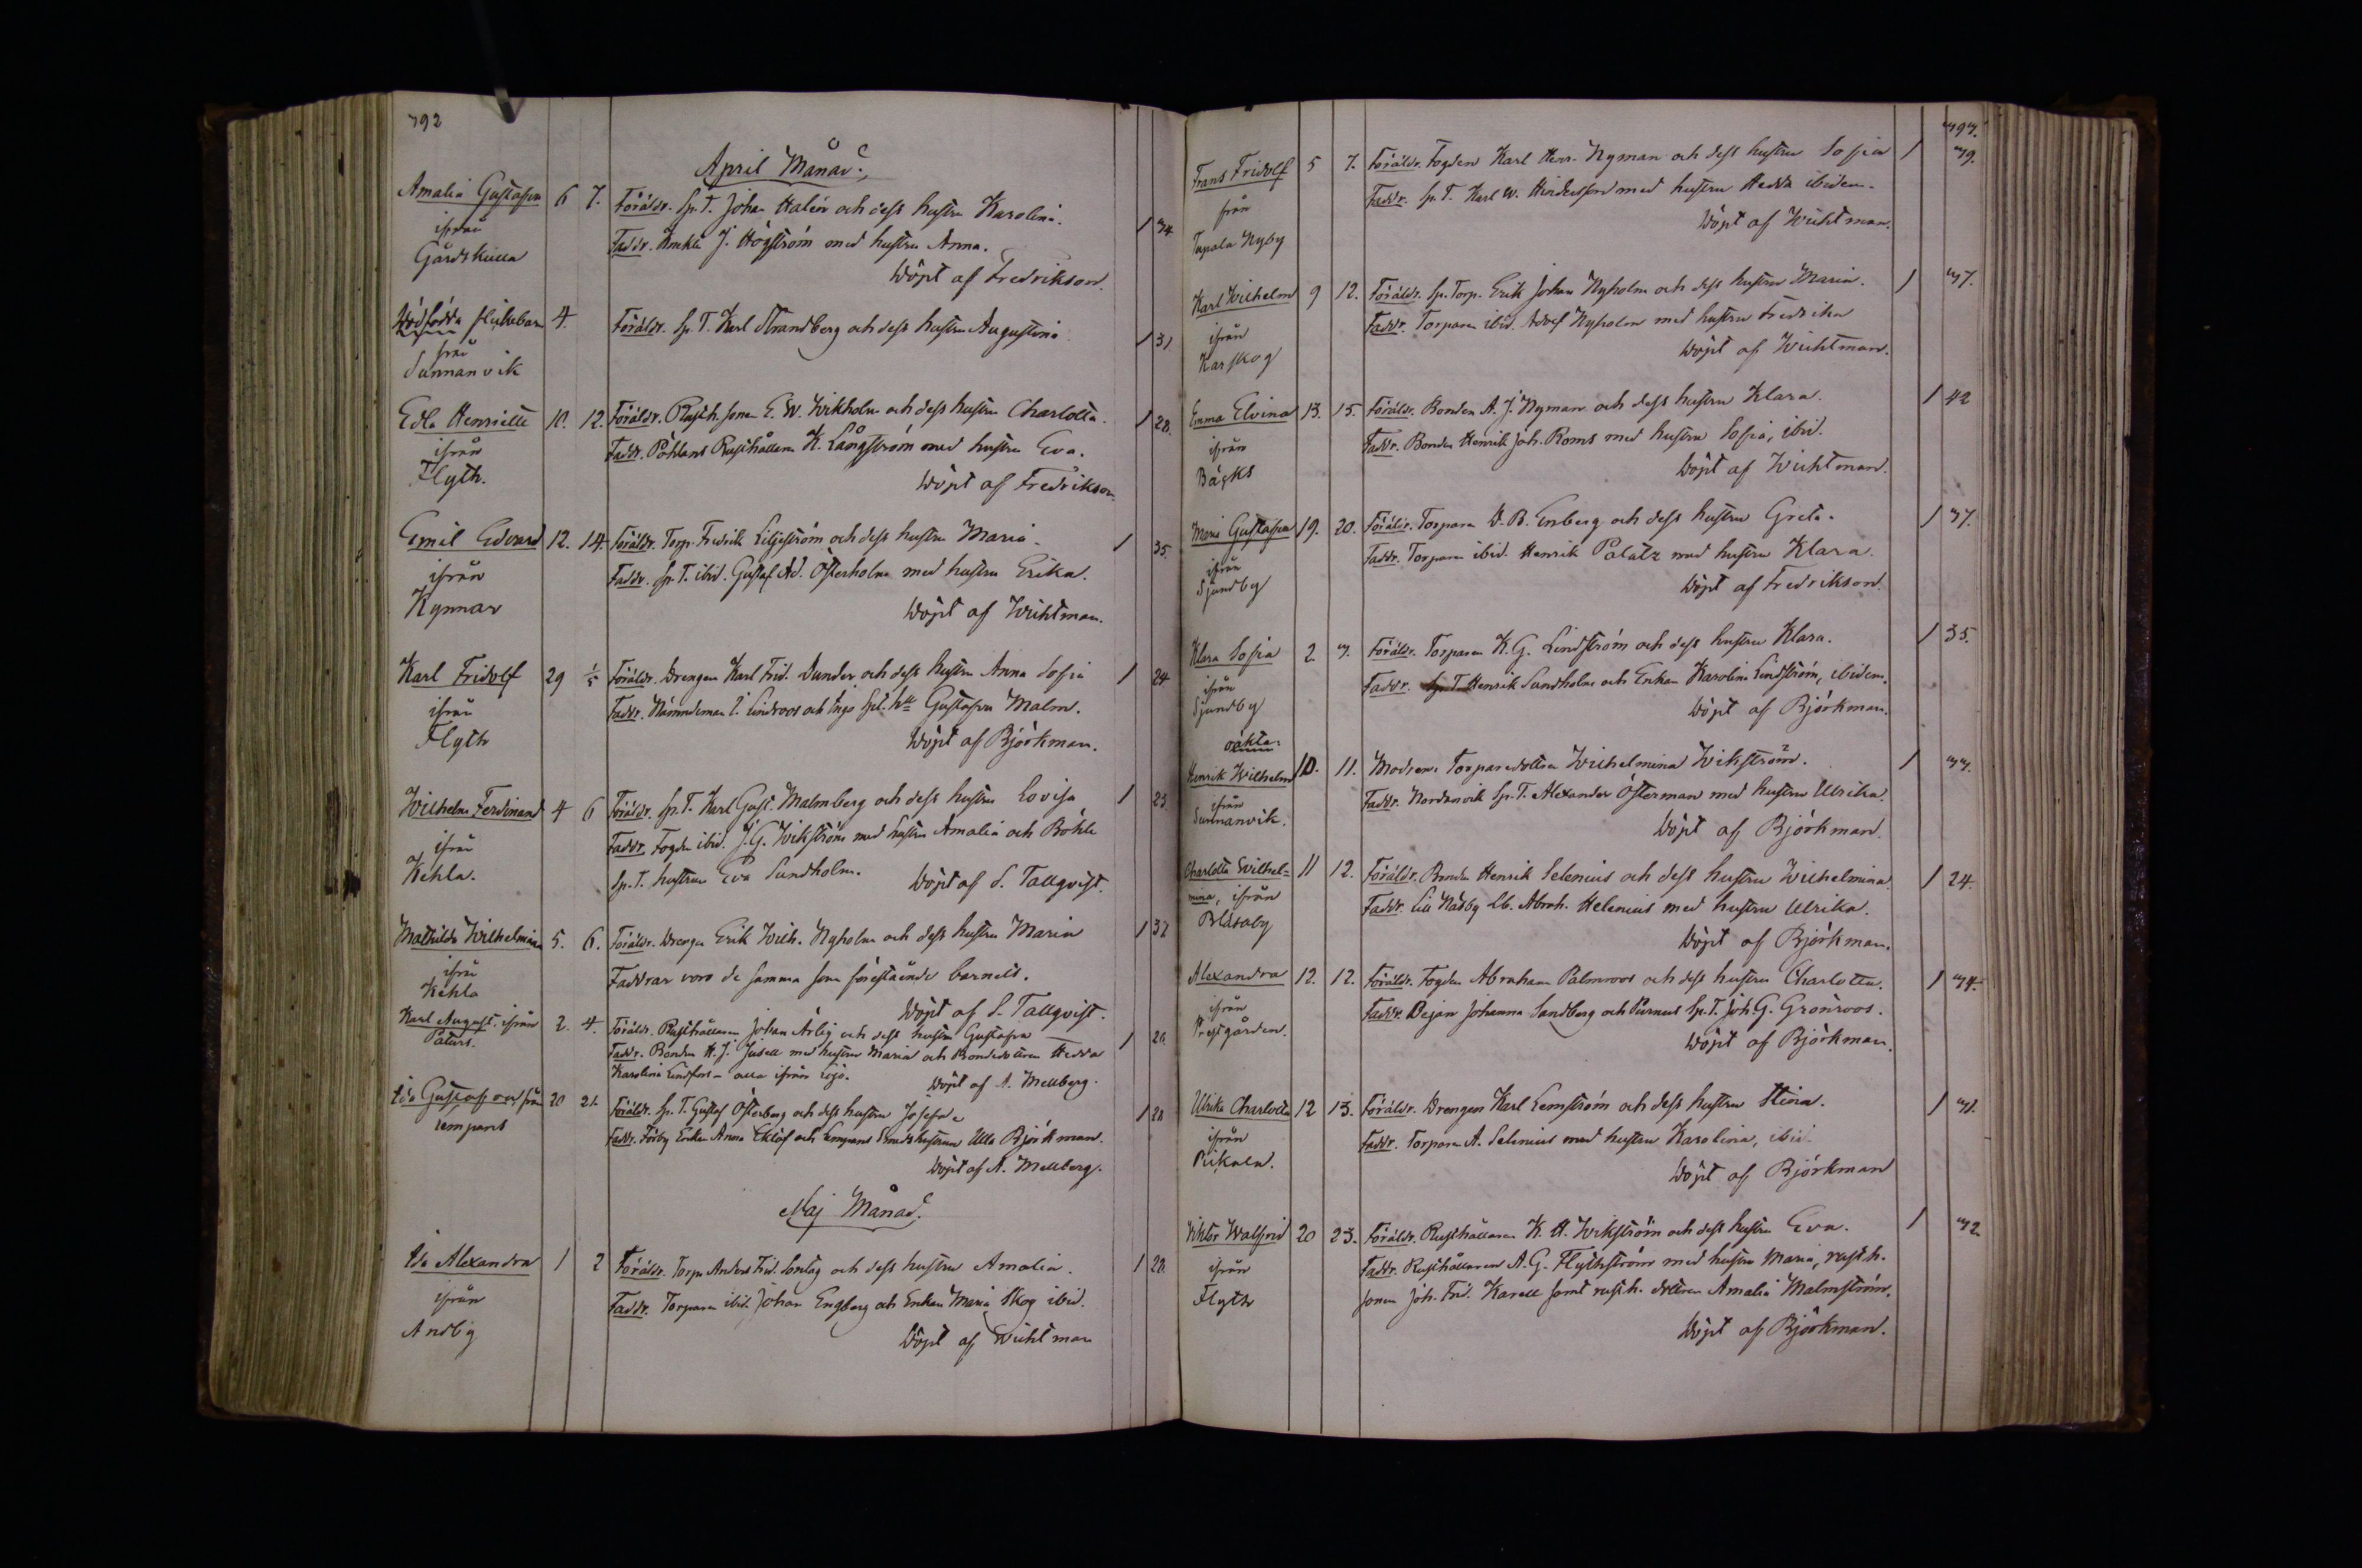 792
April Månad.
Amalia Gustafva 6 7. Föräldr. Sp. T. Johan Halén och dess hustru Karolina. 1 34
ifrån
Gårdskulla
Faddr. J. Högström med hustru Anna.
Döpt af Fredrikson.
Dödfödda flickebarn 4. Föräldr. Sp. T. Karl Strandberg och dess hustru Augustina 1 31
från
Sunnanvik
Edla Henriette 10. 12. Föräldr. Rusth. sonen E. W. Wikholm och dess hustru Charlotta. 1 28.
ifrån
Flyth.
Faddr. Påhlars Rusthållaren K. Långström med hustru Eva.
Döpt af Fredrikson.
Emil Edvard 12. 14. Föräldr. Torp. Fredrik Liljeström och dess hustru Maria. 1 35.
ifrån
Kynnar
Faddr. Sp. T. ibid. Gustaf Ad. Österholm med hustru Erika.
Döpt af Wichtman.
Karl Fridolf 29 1/5 Föräldr. Drengen Karl Frid. Dunder och dess hustru Anna Sofia 1 24
ifrån
Flyth
Faddr. Nämndeman Lindroos och Ingo Gustafva Malm.
Döpt af Björkman.
Wilhelm Ferdinand 4 6 Föräldr. Sp. T. Karl Gust. Malmberg och dess hustru Lovisa 1 23
ifrån
Kehla.
Faddr. Fogden ibid. J. G. Wikström med hustru Amalia och Böhle
Sp. T. hustrun Eva Sundholm. Döpt af S. Tallqvist.
Mathilda Wilhelmina 5. 6. Föräldr. Drengen Erik Wilh. Nyholm och dess hustru Maria 1 32
ifrån
Kehla
Faddrar voro de samma som förestående barnets.
Döpt af S. Tallqvist.
Karl August, ifrån 2. 4. Föräldr. Rusthållaren Johan Ärlig och dess hustru Gustafva 1 26.
Paturs.
Faddr. Bonden K. J. Jusell med hustru Maria och Bondedottren Hedda
Karolina Lindfors – alla ifrån Lojo. Döpt af A. Mellberg.
Ida Gustafva, från 20 21. Föräldr. Sp. T. Gustaf Österberg och dess hustru Josefa 1 28
Lempans
Faddr. Förby Enkan Anna Eklöf och Lempans Smedshustrun Ulla Björkman.
Döpt af A. Mellberg.
Maj Månad.
Ida Alexandra 1 2 Föräldr. Torp. Anders Frid. Sontag och dess hustru Amalia. 1 28.
ifrån
Andby
Faddr. Torparen ibid. Johan Engberg och Enkan Maria Skog ibid.
Döpt af Wichtman
793.
Frans Fridolf 5 7. Föräldr. Fogden Karl Herr. Nyman och dess hustru Sofia 1 39.
från
Tupala Nyby
Faddr. Sp. T. Karl W. med hustru Hedda ibidem.
Döpt af Wichtman.
Karl Wilhelm 9 12. Föräldr. Sp. Torp. Erik Johan Nyholm och dess hustru Maria. 1 37.
ifrån
Karskog
Faddr. Torparen ibid. Adolf Nyholm med hustru Fredrika
Döpt af Wichtman.
Emma Elvina 13. 15. Föräldr. Bonden A. J. Nyman och dess hustru Klara. 1 42
ifrån
Bäcks
Faddr. Bonden Henrik Joh. Roms med hustru Sofia, ibid.
Döpt af Wichtman.
Maria Gustafva 19. 20. Föräldr. Torparen D. B. Enberg och dess hustru Greta. 1 37.
ifrån
Sjundby
Faddr. Torparen ibid. Henrik Palatz med hustru Klara.
Döpt af Fredrikson.
Klara Sofia 2. 3. Föräldr. Torparen K. G. Lindström och dess hustru Klara. 1 35.
ifrån
Sjundby
Faddr. Sp. T. Henrik Sundholm och Enkan Karolina Lindström, ibidem.
Döpt af Björkman.
oäkta.
Henrik Wilhelm 10. 11. Modren: Torparedottren Wilhelmina Wikström. 1 33.
ifrån
Sunnanvik.
Faddr. Nordanvik Sp. T. Alexander Österman med hustru Ulrika.
Döpt af Björkman.
Charlotta Wilhel- 11 12. Föräldr. Bonden Henrik Selenius och dess hustru Wilhelmina. 1 24.
mina, ifrån
Blåsaby
Faddr. Lill Nädby Lb. Abrah. Helenius med hustru Ulrika.
Döpt af Björkman.
Alexandra 12. 12. Föräldr. Fogden Abraham Palmroos och dess hustru Charlotta. 1 34.
ifrån
Prestgården.
Faddr. Pejan Johanna Sandberg och Purnus Sp. T. Joh. G. Grönroos.
Döpt af Björkman.
Ulrika Charlotta 12 13. Föräldr. Drengen Karl Lemström och dess hustru Stina. 1 31.
ifrån
Pickala.
Faddr. Torparen A. Selenius med hustru Karolina, ibid.
Döpt af Björkman
Viktor Walfrid 20 23. Föräldr. Rusthållaren K. A. Wikström och dess hustru Eva. 1 32
ifrån
Flyth
Faddr. Rusthållaren A. G. Flythström med hustru Maria, rusth.
sonen Joh. Frd. Karell samt rusth. dottren Amalia Malmström.
Döpt af Björkman.